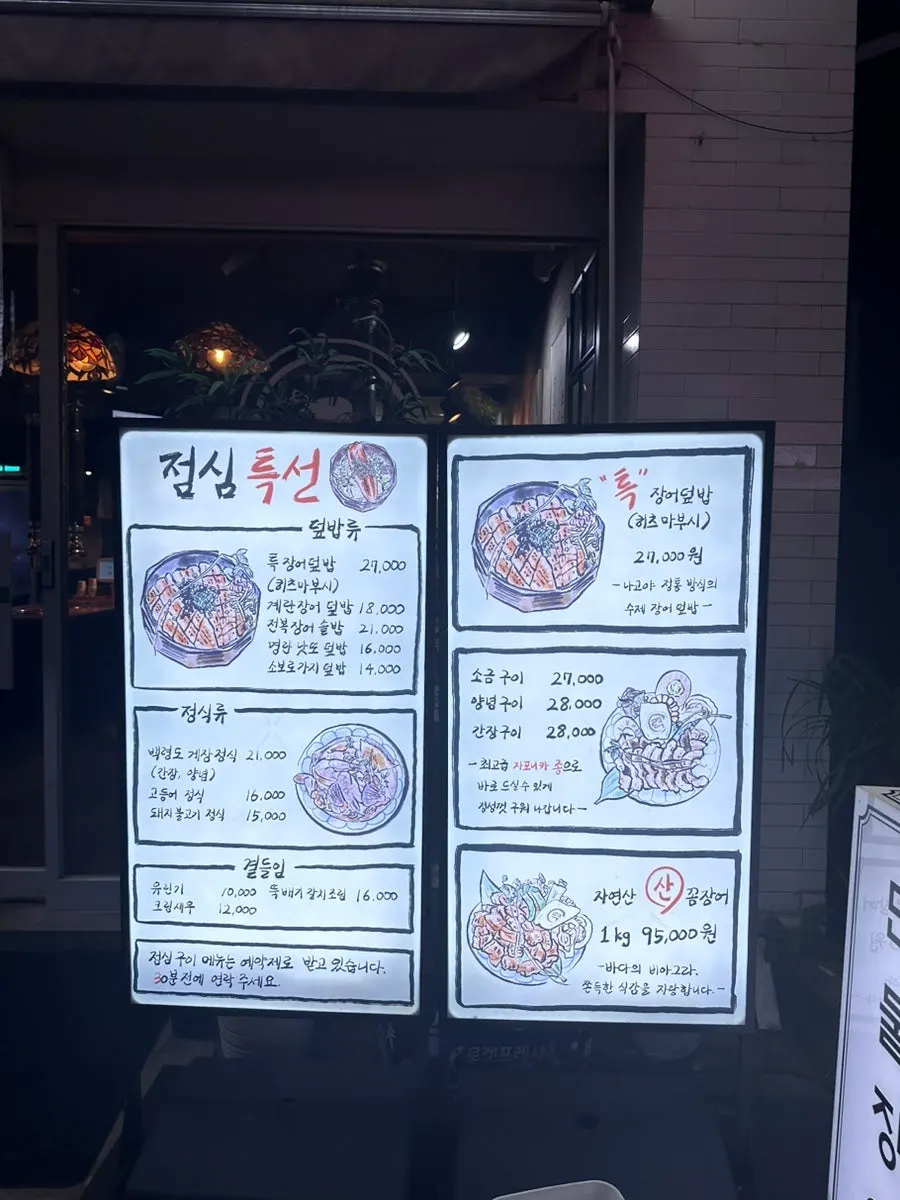 점심 특선
덮밥류
특장어덮밥 27,000
(히츠마부시)
계란장어 덮밥 18,000
전복장어 솥밥 21,000
명란 낫또 덮밥 16,000
소보로가지 덮밥 14,000
정식류
백령도 게장정식 21,000
(간장, 양념)
고등어 정식 16,000
돼지불고기 정식 15,000
곁들임
유린기 10,000 뚝배기 갈치조림 16,000
크림새우 12,000
점심 구이 메뉴는 예약제로 받고 있습니다.
30분전에 연락 주세요.
"특" 장어덮밥
(히츠마부시)
27,000원
-나고야 정통 방식의
수제 장어 덮밥-
소금구이 27,000
양념구이 28,000
간장구이 28,000
-최고급 자포니카 종으로
바로 드실수 있게
정성껏 구워 나갑니다-
자연산 산 꼼장어
1kg 95,000원
-바다의 비아그라.
쫀득한 식감을 자랑합니다.-